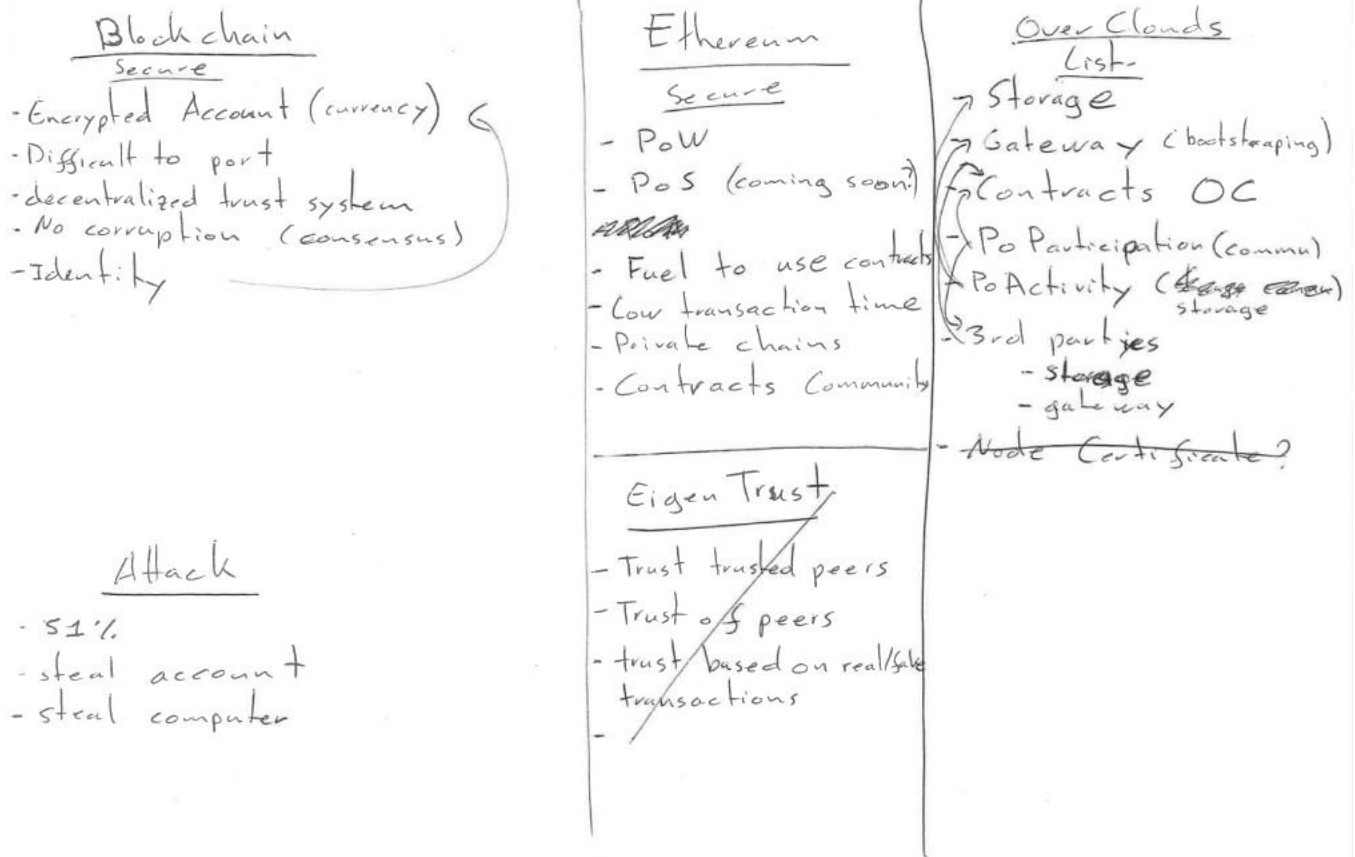 Blockchain
Secure
- Encrypted Account (currency)
- Difficult to port
- decentralized trust system
- No corruption (consensus)
- Identity
Attack
- 51%
- steal account
- steal computer
Ethereum
Secure
- PoW
- PoS (coming soon?)
- Fuel to use contracts
- Low transaction time
- Private chains
- Contracts Community
Eigen Trust
- Trust trusted peers
- Trust of peers
- trust based on real/fake
transactions
-
OverClouds
List
- Storage
- Gateway (bootstraping)
- Contracts OC
- Po Participation (commu)
- Po Activity (
storage
- 3rd parties
- storage
- gateway
- Node Certificate?